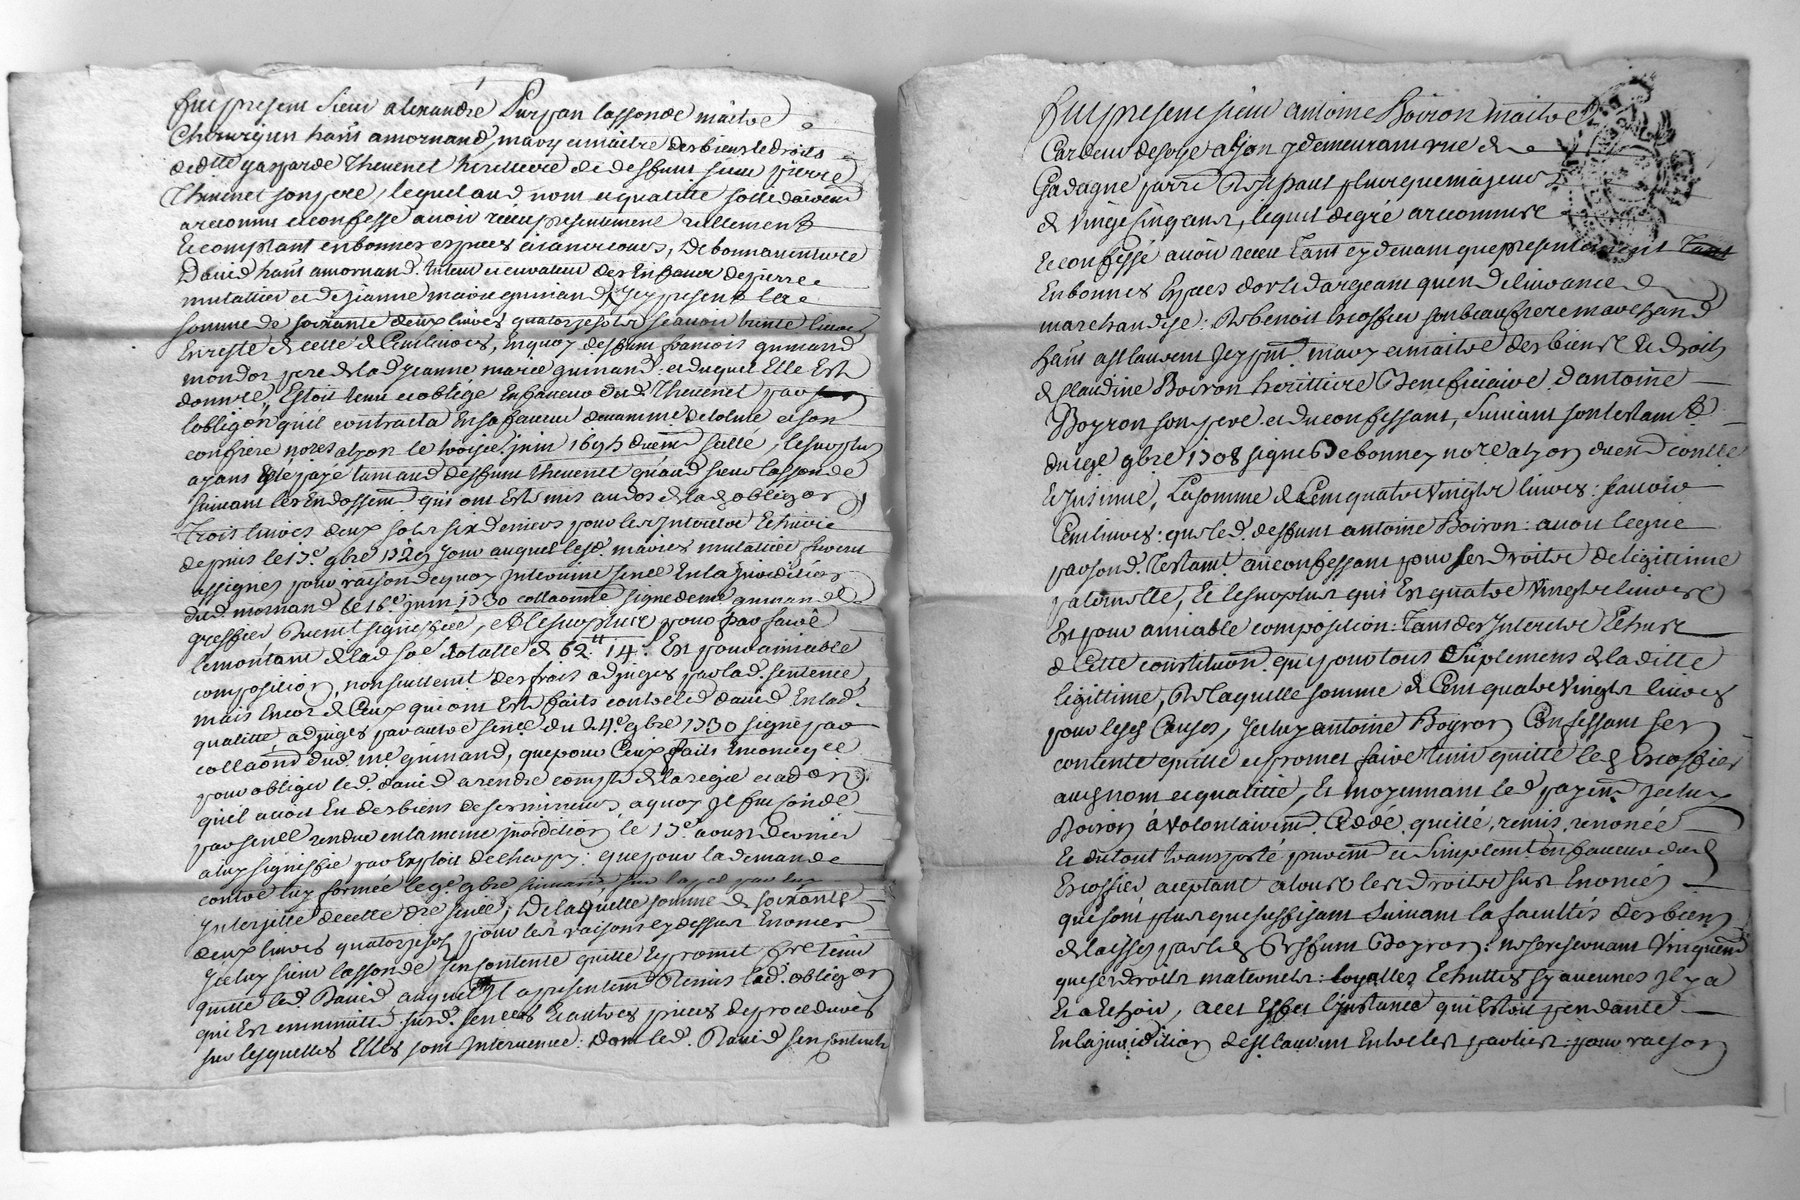 fut present sieur alexandre Purpan lassonde maitre
Chirurgien hant amornand, mary et maitre des biens et droits
de dlle gasparde Thevenet heritiere de deffunt sieur pierre
Thevenet son pere, lequel aud. nom et qualitte
a reconnu et confesse avoir receu presentement reellement
et comptant en bonnes especes de bonnaventure
David hant amornand. tuteur et curateur des Enfans de pierre
mulattier et de jeanne marie guinand Icy present la
somme de soixante deux livres quatorze sols scavoir trente livres
En reste de celle de Cent livres, En quoy deffunt francois guinand
mondor pere de lad. Jeanne marie guinand: et duquel Elle Est
Estoit tenu et obligé En faveur dud. Thevenet par
lobligaon quil contracta En sa faveur et son
confrere nores alyon le troisie. juin 1695 scellé, le surplus
ayant Eté payé tant aud. deffunt thevenet quaud. sieur lassonde
suivant les Endossemt. qui ont Esté mis au dos de lad. obligaon
Trois livres deux sols six deniers pour les Interets
depuis le 17e. gbre 1729 jour auquel lesd. mariés mulattier furent
assignes pour raison de quoy Intervint senee. En la jurisdiction
dud. mornand le 16e. juin 1730 collaonné signé de me guinand
greffier signiffiée, Et le surplus pour parfaire
le montant de lad. soe. totalle de 62tt 14s. Est pour amiable
composition, non seullemt. des frais adjuges par lad. sentence,
mais Encor de Ceux qui ont Esté faits contre led. david En lad.
qualitte adjuges par autre senee. du 24e. gbre 1730 signé par
collaond dud. me guinand, que pour Ceux faits
pour obliger led. david a rendre compte de la regie et
quil avoit Eu des biens de ses mineurs a quoy Il fut condé
par senee. rendue en la meme jurisdiction le 17e. aoust dernier
a luy signiffié par Exploit de chevry: que pour la demande
contre luy formée le 9e. gbre suivant sur lapel par luy
Interjetté de cette dre. senee; De laquelle somme de soixante
deux livres quatorze sols pour les raisons cy dessus Enonces
Icelluy sieur lassonde sen contente quitte et promet fre tenir
quitte led. David, auquel Il a presentemt. Remis lad. obligaon
qui Est en minutte. sensces Et autres pieces de procedures
sur lesquelles Elles sont Intervenue: dont led. David sen contente
fut present sieur antoine Boiron maitre
Cardeur de soye alyon y demeurant rue de
Gadagne parre St. paul plus que majeur
de vingt cinq ans, lequel de gré a reconnu et
Et confessé avoir receu tant cy devant que presentement
En bonnes Especes dor et dargeant quen delivrance de
marchandise: De benoit Escoffier son beaufrere marchand
hant ast laurent Icy pnt. mary et maitre des biens et droits
de Claudine Boiron herittiere Beneficiaire dantoine
Boyron son pere et du confessant, suivant son testamt.
du gbre 1708 signé Debonney nore. alyon
Et Insinué, La somme de Cent quatre vingts livres: scavoir
Cent livres: que led. deffunt antoine Boiron: avoit legue
par sond. Testamt. au confessant pour ses droits de legittime
paternelle, Et le surplus qui Est quatre vingts livres
Est pour amiable composition: Tant des Interets Echus
de Cette constitution. que pour tous suplemens de laditte
legittime, De laquelle somme de Cent quatre vingts livres
pour les Causes, Icelluy antoine Boyron Confessant sen
contente quitte et promet faire tenir quitte led. Escoffier
aud. nom et qualitté, Et moyennant led. payemt. Icelluy
Boiron a volontairemt. Cedé, quitté, remis, renoncé
Et du tout transporté puremt. et simplemt. En faveur dud.
Escoffier aceptant a tous les droits sus Enoncés
qui sont plus que suffisant suivant la facultés des biens
delaissés par led. Deffunt Boyron: ne se reservant Uniquemt.
que ses droits maternels: loyalles Echuttes sy aucunes Il y a
Et a Echoir, a cet Effet Linstance qui Estoit pendante
En la jurisdiction de st laurent Entre les parties pour raison